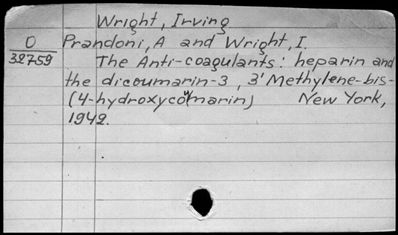 Wright, Irving
O Prandoni, A and Wright, I.
32759 The Anti-coagulants: heparin and
the dicoumarin-3, 3' Methylene-bis-
(4-hydroxycoumarin) New York,
1942.